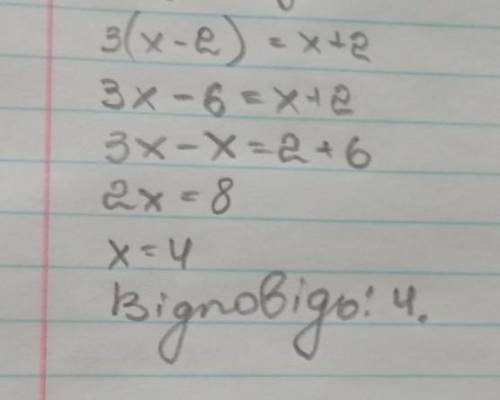 3(x-2) = x+2
3x - 6 = x+2
3x - x = 2 + 6
2x = 8
x = 4
Відповідь: 4.